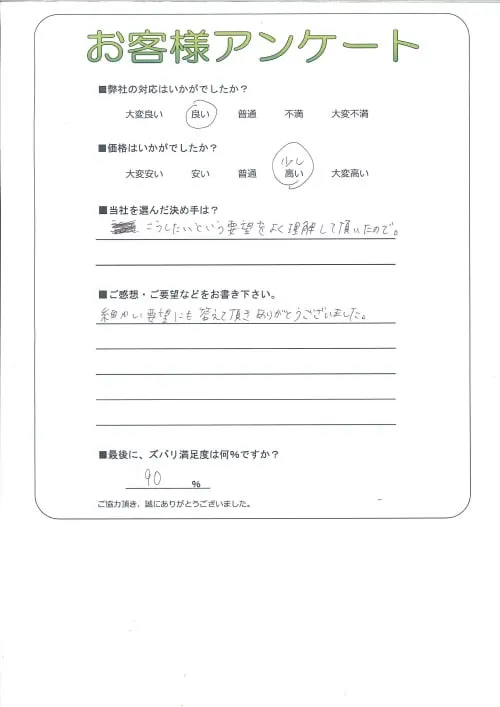 お客様アンケート
■弊社の対応はいかがでしたか?
大変良い 良い 普通 不満 大変不満
■価格はいかがでしたか?
少し
大変安い 安い 普通 高い 大変高い
■当社を選んだ決め手は?
こうしたいという要望をよく理解して頂いたので。
■ご感想・ご要望などをお書き下さい。
細かい要望にも答えて頂きありがとうございました。
■最後に、ズバリ満足度は何%ですか?
90 %
ご協力頂き、誠にありがとうございました。